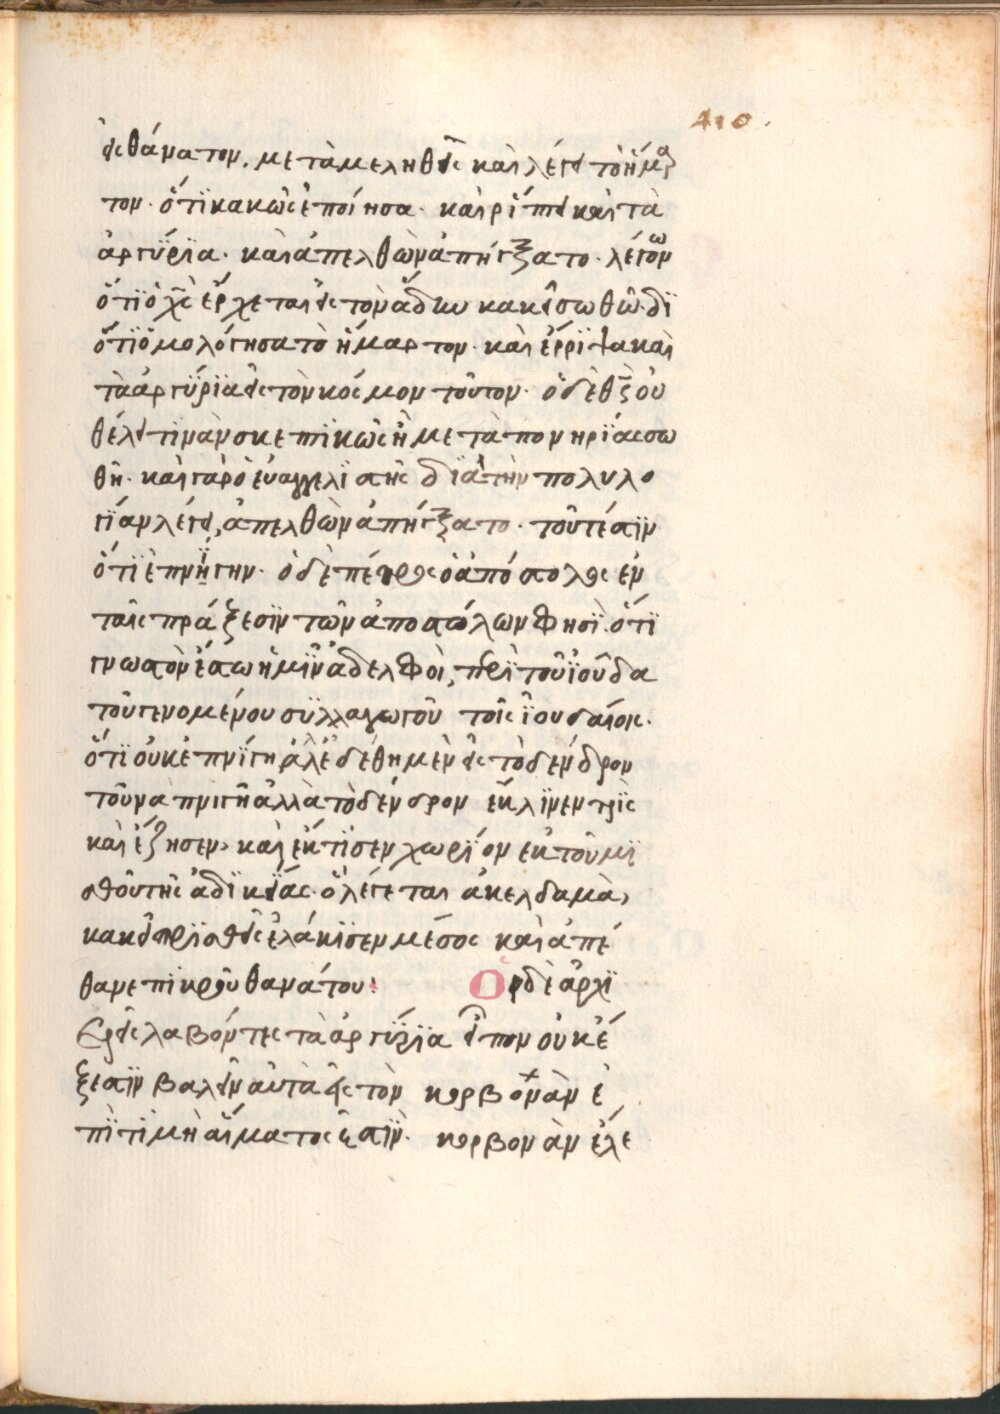 410.
εἰς θάνατον. μεταμεληθεὶς καὶ λέγει τὸ ἥμαρ
τον· ὅτϊ κακῶς ἐποίησα· καὶ ρίπτει καὶ τὰ
ἀργύρϊα· καὶ ἀπελθὼν ἀπήγξατο· λέγων
ὅτϊ ὁ χς ἔρχεται εἰς τὸν ἅδην κακεῖ σωθῶ· δϊ
ότϊ ὁμολόγησα τὸ ἥμαρτον· καὶ ἔρριψα καὶ
τὰ ἀργύρϊα εἰς τὸν κόσμον τοῦτον· ὁ δὲ θς οὐ
θέλει τινὰν σκεπϊκῶς ἢ μετὰ πονηρϊας σω
θῆ· καὶ γὰρ ὁ εὐαγγελϊστὴς δϊὰ τὴν πολυλο
γίαν λέγει, ἀπελθὼν ἀπήγξατο· τοῦτέστϊν
ὅτϊ ἐπνήγην· ὁ δὲ πέτρος ὁ ἀπόστολος ἐν
ταῖς πράξεσϊν τῶν ἀποστόλων φησϊ· ὅτϊ
γνωστὸν ἔστω ἡμῖν ἀδελφοὶ, περὶ τοῦ ϊοῦδα
τοῦ γενομένου συλλαγωγοῦ τοῖς ϊουδαίοις·
ὅτϊ οὐκ ἐπνϊγη ἀλ ἐδέθη μὲν εἰς τὸ δένδρον
τοῦ να πνιγῆ ἀλλὰ τὸ δένδρον ἔκλϊνεν τρϊς
καὶ ἔζησεν, καὶ ἐκτϊσεν χωρϊον ἐκ τοῦ μϊ
σθοῦ τῆς ἀδϊκϊας· ὃ λέγεται ἀκελδαμὰ,
κακεῖ πρϊσθεὶς ἐλάκϊσεν μέσος καὶ ἀπέ
θανε πϊκροῦ θανάτου: Οἱ δὲ ἀρχϊ
ερεῖς λαβόντες τὰ ἀργύρϊα εἶπον οὐκ ἔ
ξεστϊν βαλεῖν αὐτὰ εἰς τὸν κορβονὰν ἐ
πϊ τϊμὴ αἵματος ἐστϊν· κορβονὰν ἔλε